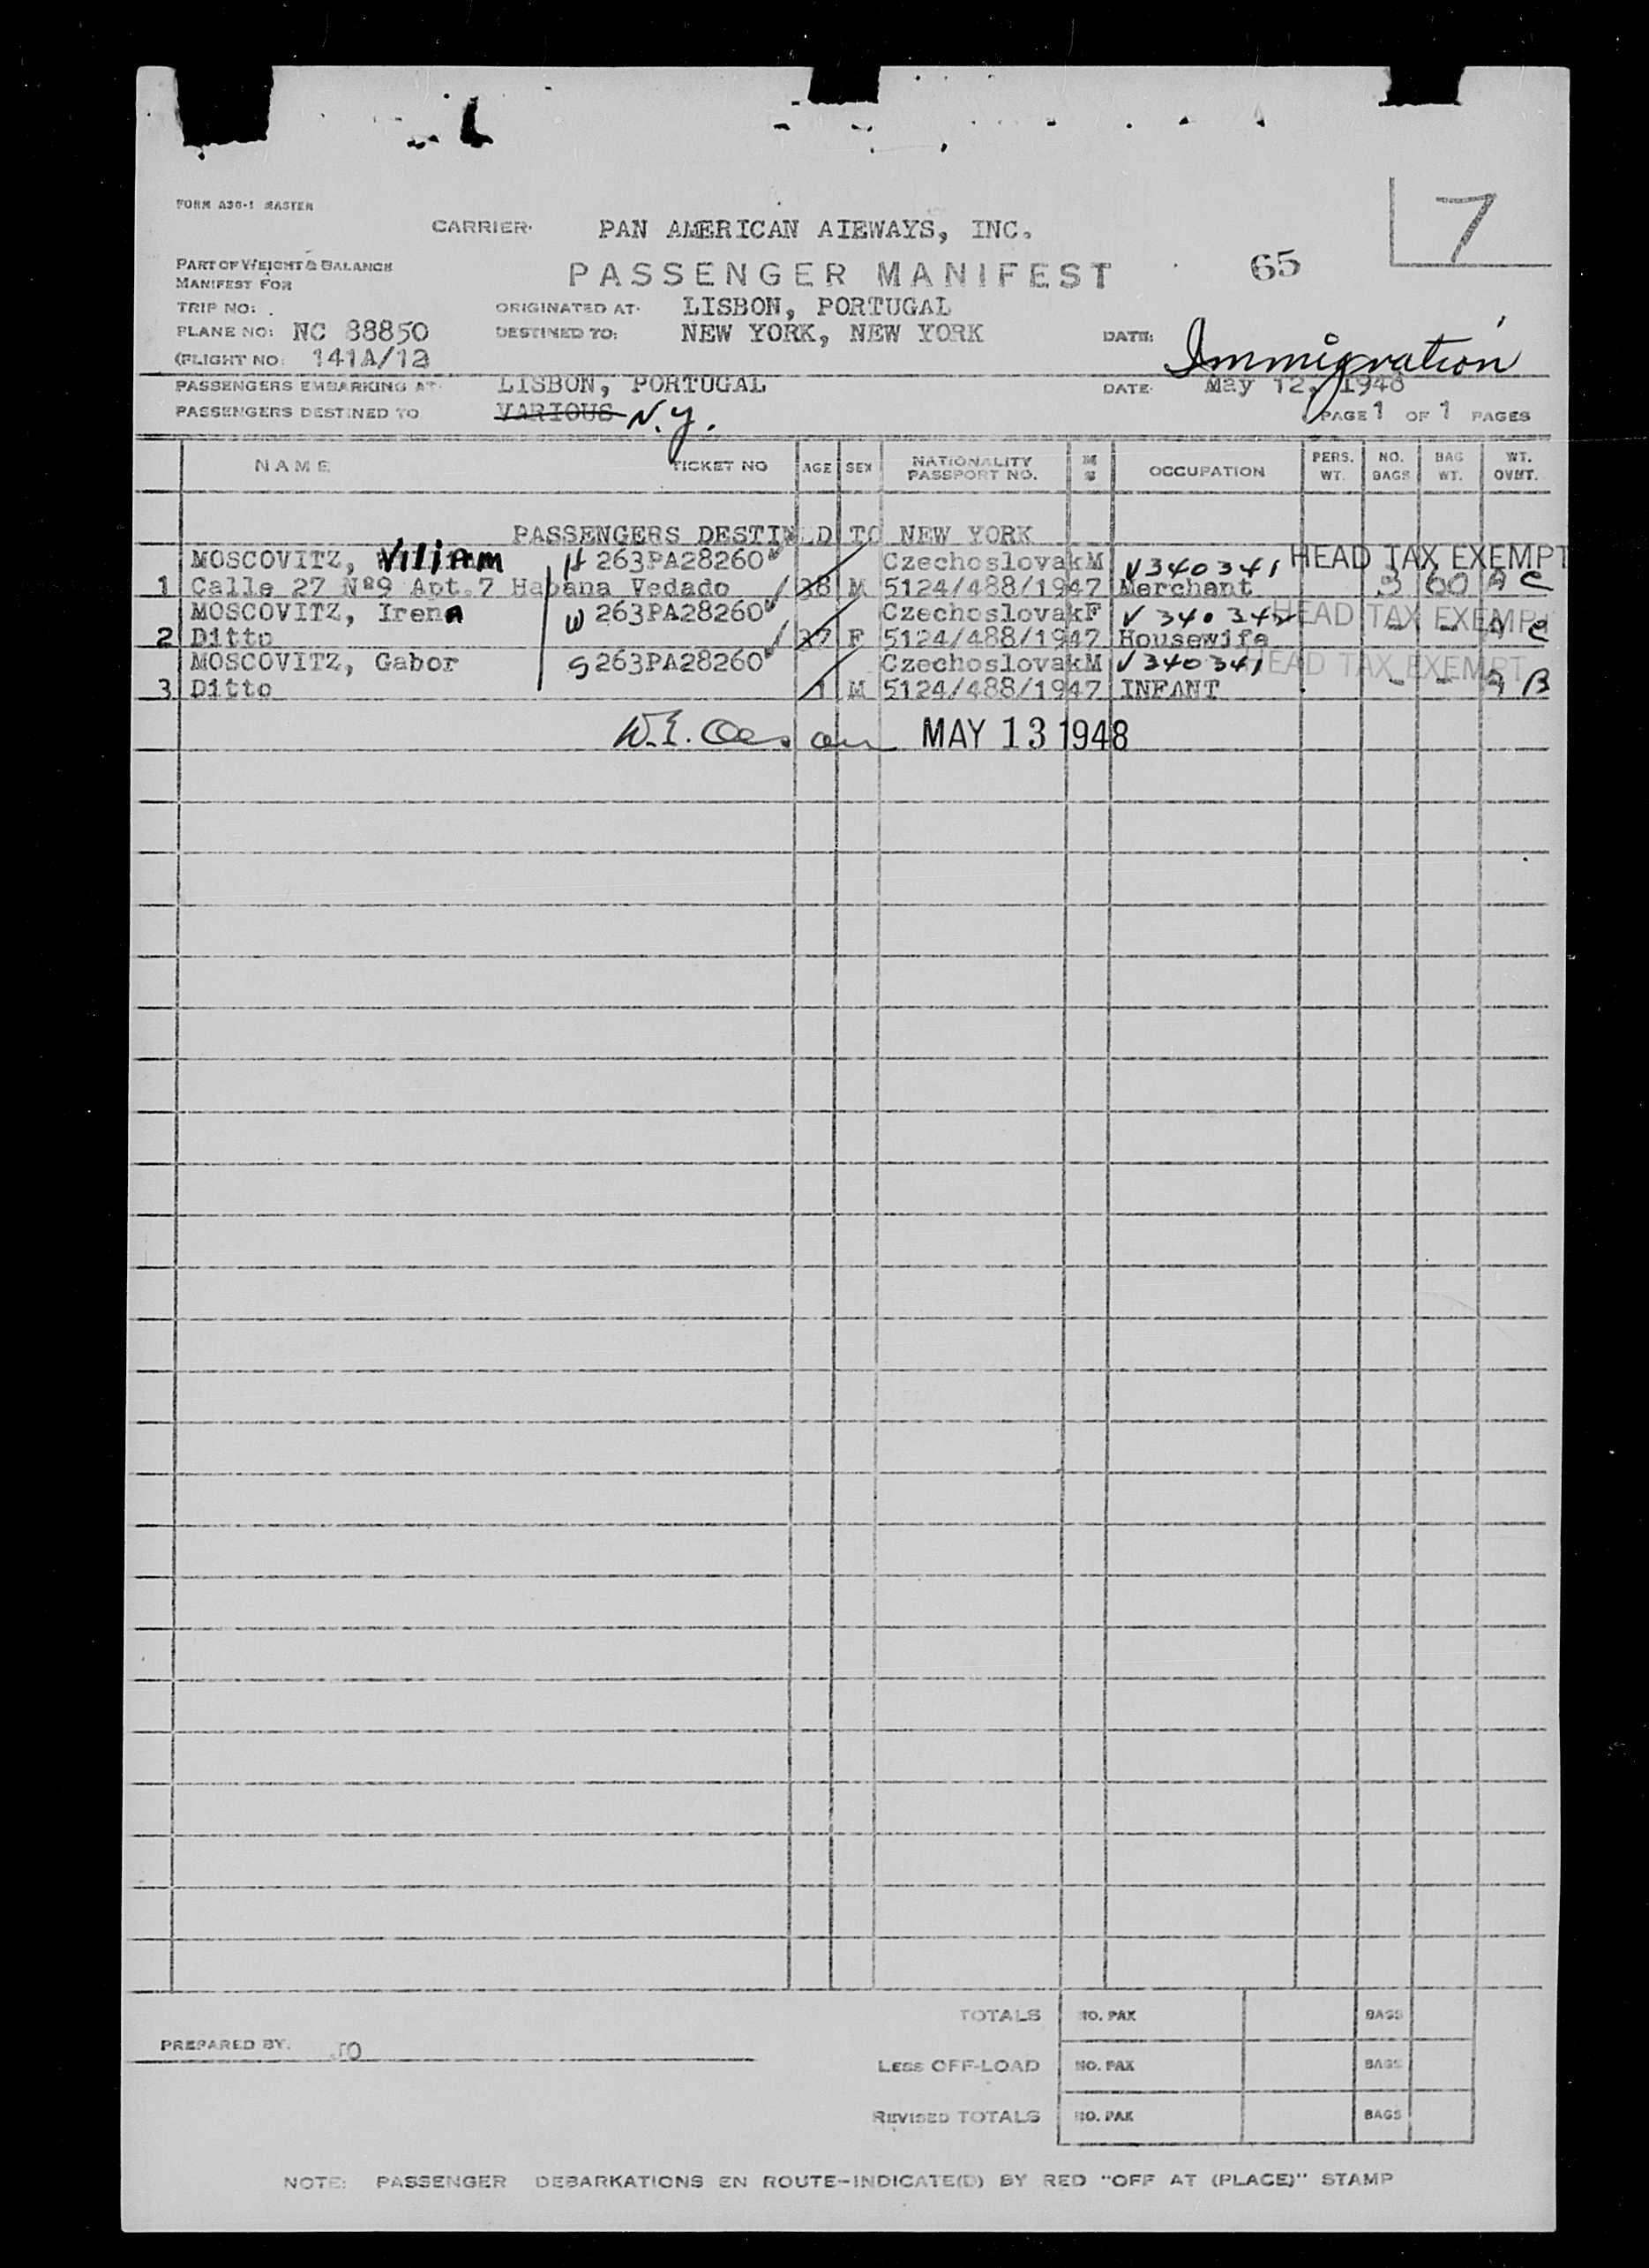 FORM A36-1 MASTER
CARRIER: PAN AMERICAN AIRWAYS, INC.
7
PART OF WEIGHT & BALANCE
MANIFEST FOR
PASSENGER MANIFEST
65
TRIP NO:
ORIGINATED AT: LISBON, PORTUGAL
PLANE NO: NC 88850
DESTINED TO: NEW YORK, NEW YORK
DATE: Immigration
(FLIGHT NO: 141A/12
PASSENGERS EMBARKING AT: LISBON, PORTUGAL
DATE: May 12, 1948
PASSENGERS DESTINED TO VARIOUS N.Y.
PAGE 1 OF 1 PAGES
NAME TICKET NO AGE SEX NATIONALITY PASSPORT NO. M S OCCUPATION PERS. WT. NO. BAGS BAG WT. WT. OVHT.
PASSENGERS DESTINED TO NEW YORK
MOSCOVITZ, Viliam H 263PA28260 Czechoslovak M V340341 HEAD TAX EXEMPT
1 Calle 27 Nº9 Apt.7 Habana Vedado 38 M 5124/488/1947 Merchant 3 60 A C
MOSCOVITZ, Irena W 263PA28260 Czechoslovak F V 340342 HEAD TAX EXEMPT
2 Ditto 37 F 5124/488/1947 Housewife - - A C
MOSCOVITZ, Gabor S 263PA28260 Czechoslovak M V340341 HEAD TAX EXEMPT
3 Ditto 1 M 5124/488/1947 INFANT - - B
W.E. MAY 13 1948
TOTALS NO. PAX BAGS
PREPARED BY: JO
LESS OFF-LOAD NO. PAX BAGS
REVISED TOTALS NO. PAX BAGS
NOTE: PASSENGER DEBARKATIONS EN ROUTE-INDICATE(D) BY RED "OFF AT (PLACE)" STAMP